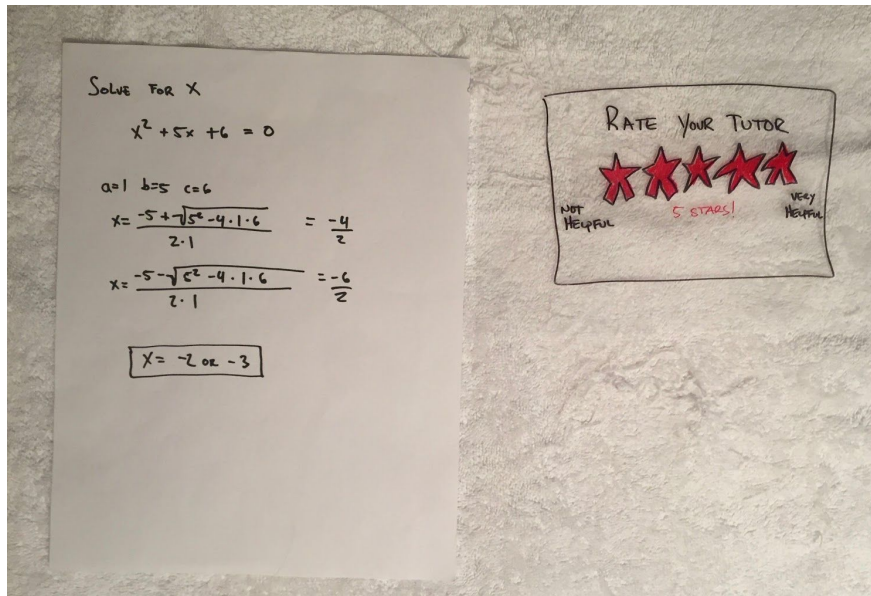 SOLVE FOR X
x² + 5x + 6 = 0
a=1 b=5 c=6
x= -5+√5²-4·1·6 / 2·1 = -4/2
x= -5-√5²-4·1·6 / 2·1 = -6/2
X= -2 OR -3
RATE YOUR TUTOR
NOT HELPFUL
5 STARS!
VERY HELPFUL